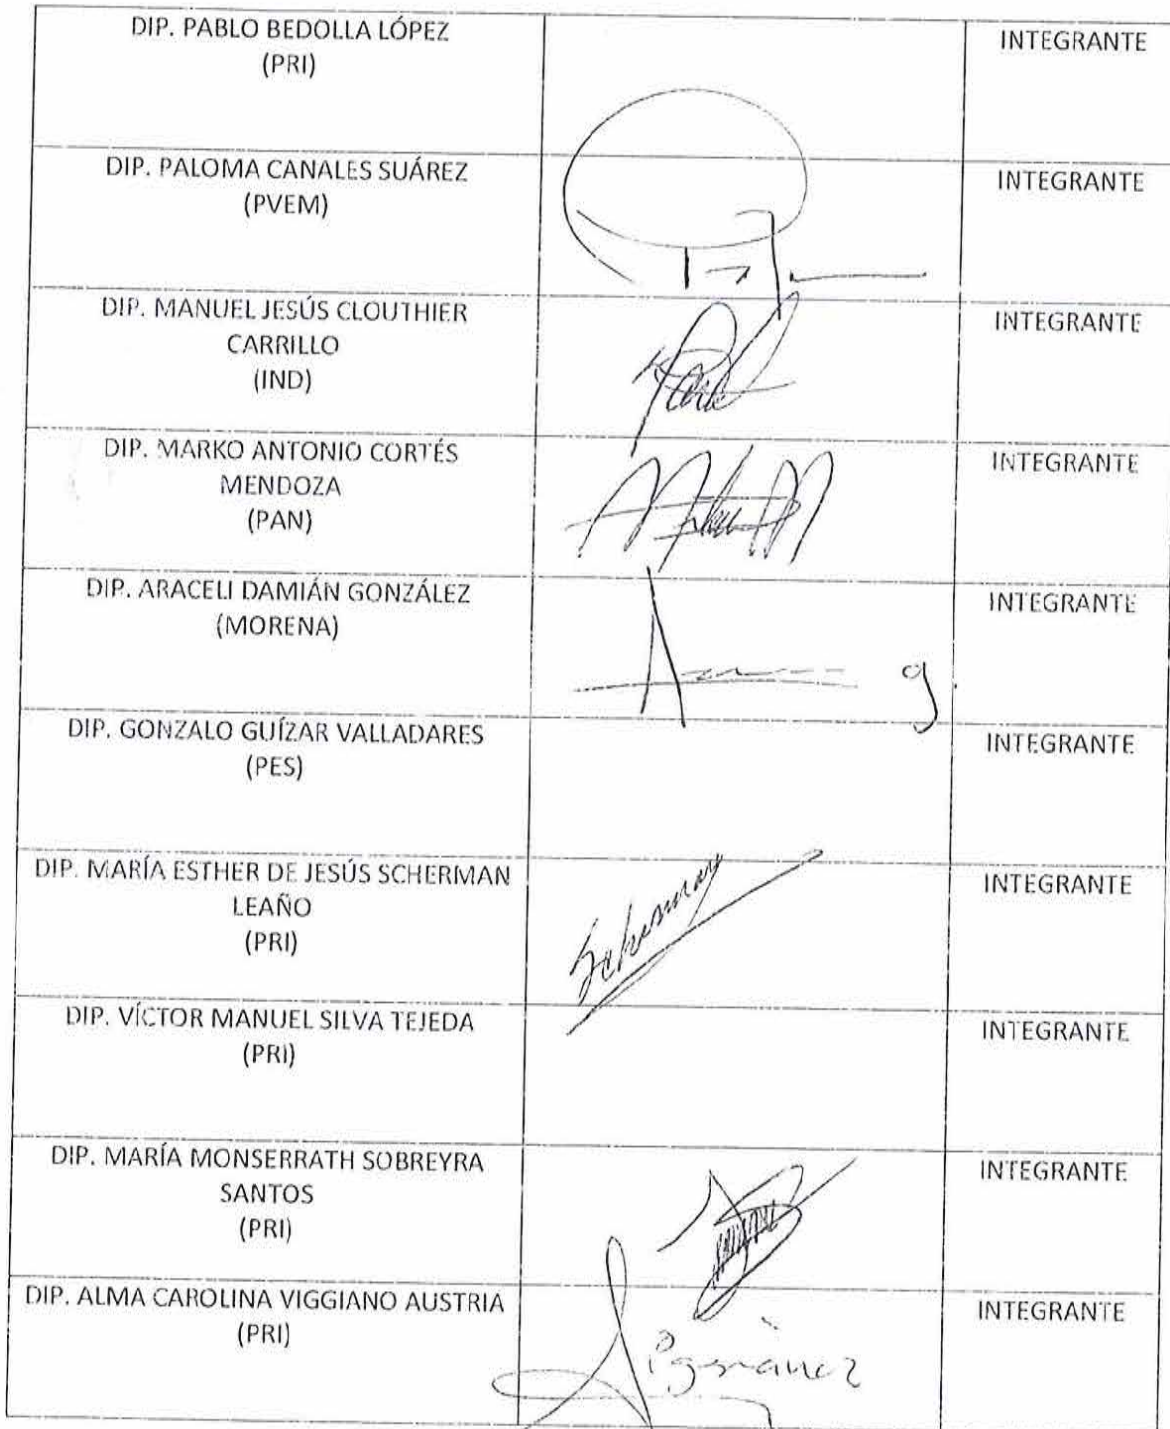 DIP. PABLO BEDOLLA LÓPEZ
(PRI)
INTEGRANTE
DIP. PALOMA CANALES SUÁREZ
(PVEM)
INTEGRANTE
DIP. MANUEL JESÚS CLOUTHIER
CARRILLO
(IND)
INTEGRANTE
DIP. MARKO ANTONIO CORTÉS
MENDOZA
(PAN)
INTEGRANTE
DIP. ARACELI DAMIÁN GONZÁLEZ
(MORENA)
INTEGRANTE
DIP. GONZALO GUÍZAR VALLADARES
(PES)
INTEGRANTE
DIP. MARÍA ESTHER DE JESÚS SCHERMAN
LEAÑO
(PRI)
Scherman
INTEGRANTE
DIP. VÍCTOR MANUEL SILVA TEJEDA
(PRI)
INTEGRANTE
DIP. MARÍA MONSERRATH SOBREYRA
SANTOS
(PRI)
INTEGRANTE
DIP. ALMA CAROLINA VIGGIANO AUSTRIA
(PRI)
INTEGRANTE